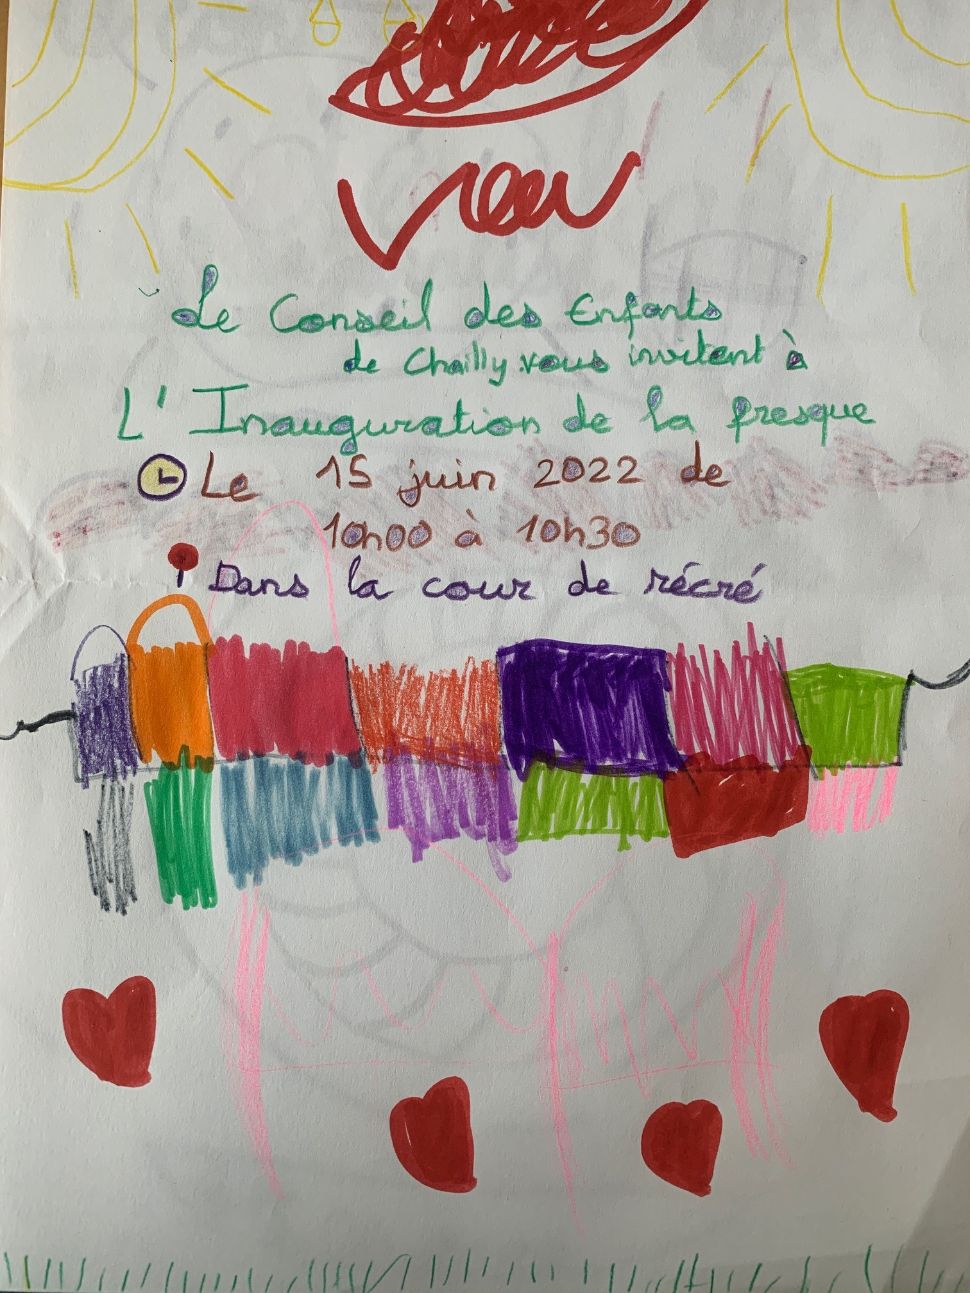 Le Conseil des Enfants
de Chailly vous invitent à
L'Inauguration de la fresque
Le 15 juin 2022 de
10h00 à 10h30
Dans la cour de récré